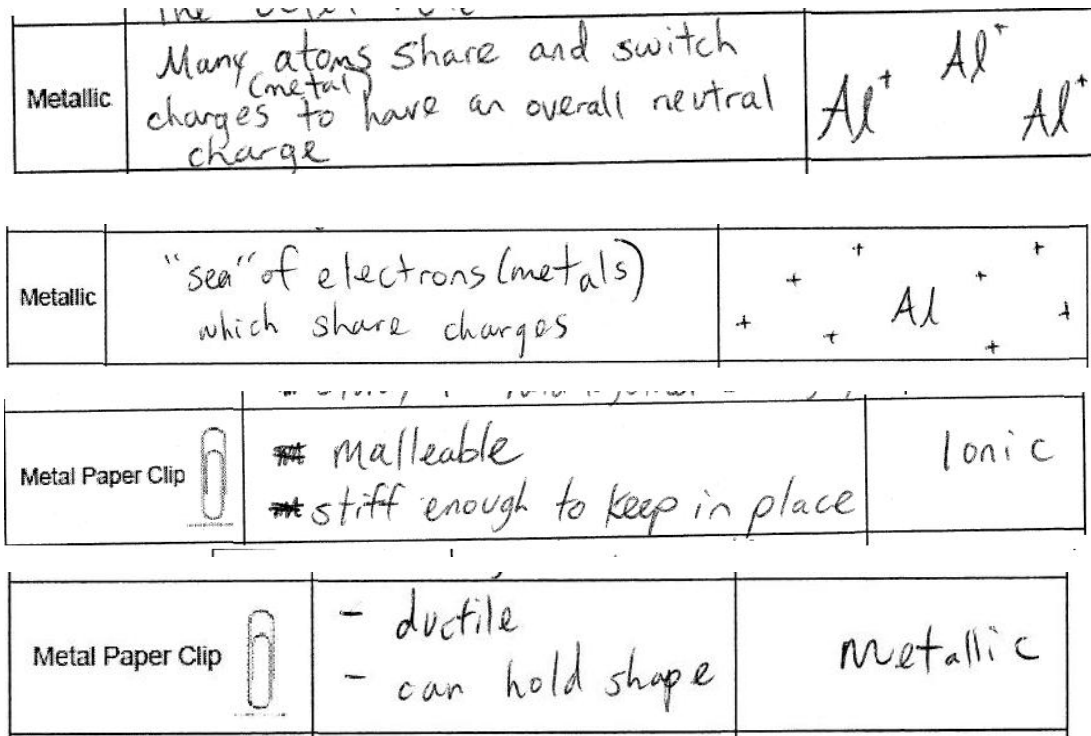 Metallic
Many atoms share and switch
(metal)
charges to have an overall neutral
charge
Al⁺ Al⁺ Al⁺
Metallic
"sea" of electrons (metals)
which share charges
+ + + + Al + + + +
Metal Paper Clip
malleable
stiff enough to keep in place
Ionic
Metal Paper Clip
- ductile
- can hold shape
Metallic